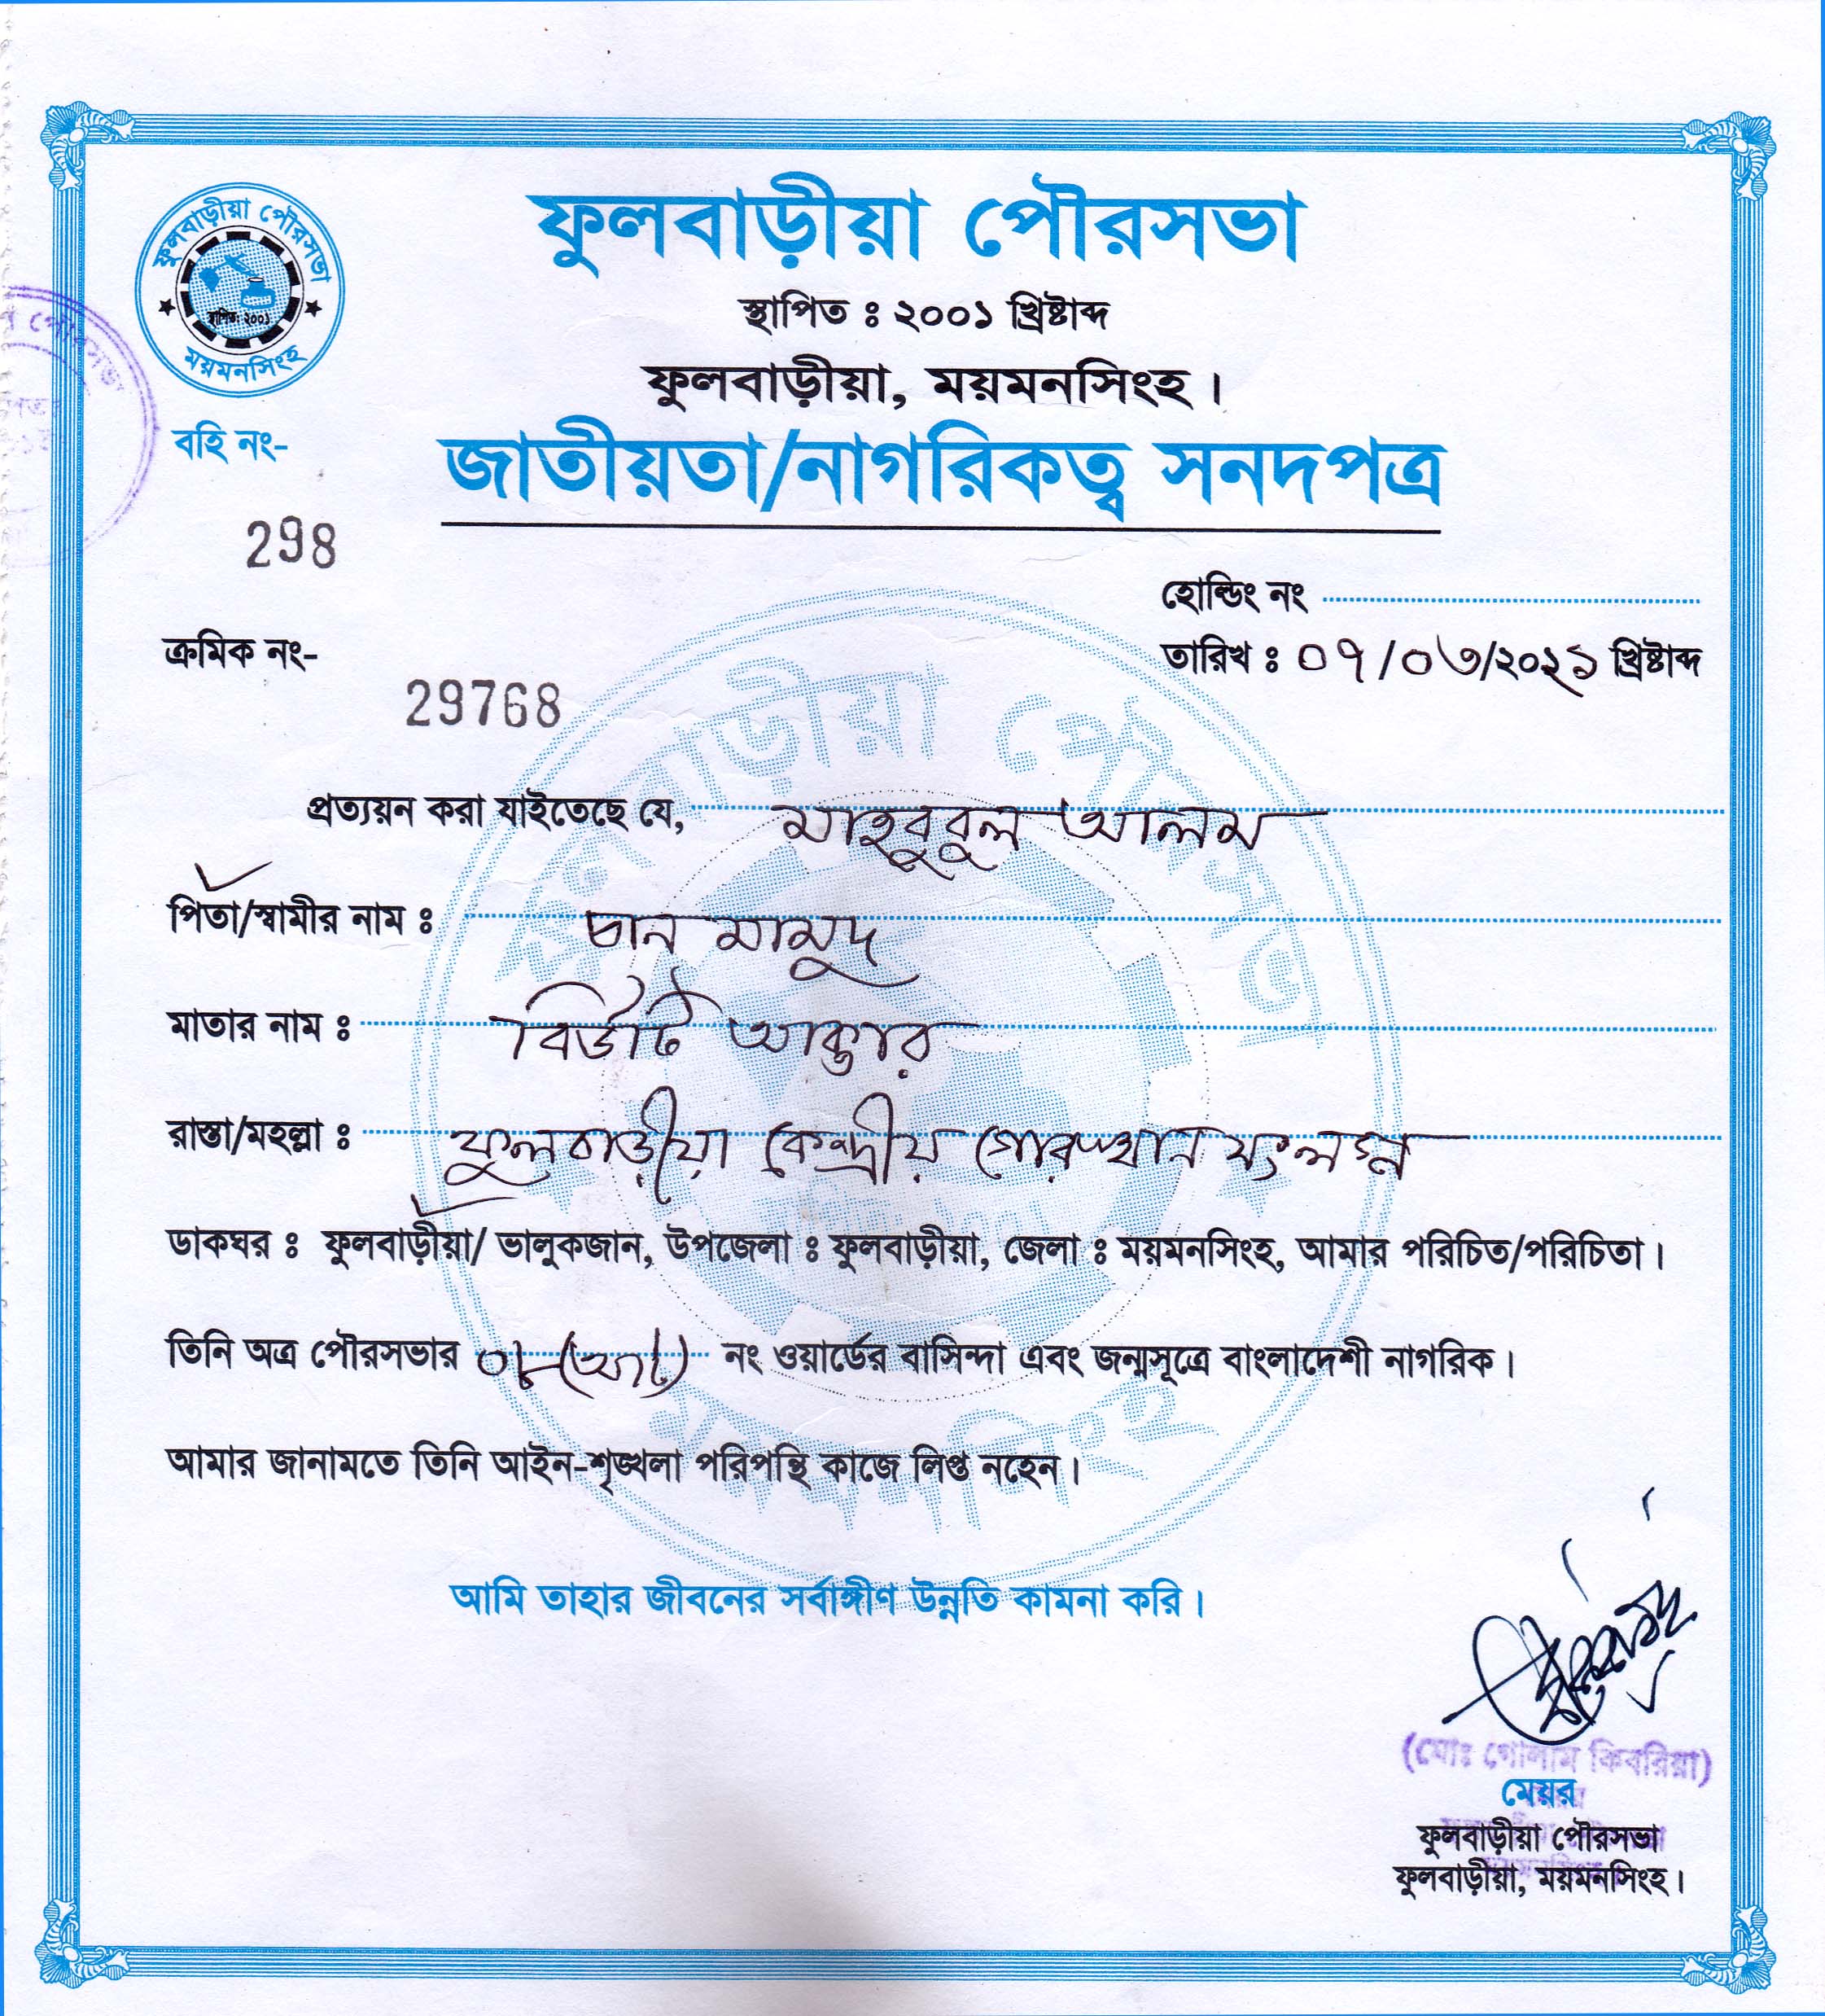 ফুলবাড়ীয়া পৌরসভা
স্থাপিত: ২০০১
ময়মনসিংহ
ফুলবাড়ীয়া পৌরসভা
স্থাপিত ঃ ২০০১ খ্রিষ্টাব্দ
ফুলবাড়ীয়া, ময়মনসিংহ।
জাতীয়তা/নাগরিকত্ব সনদপত্র
বহি নং-
298
হোল্ডিং নং
ক্রমিক নং-
তারিখ ঃ ০৭/০৩/২০২১ খ্রিষ্টাব্দ
29768
প্রত্যয়ন করা যাইতেছে যে, মাহবুবুল আলম
পিতা/স্বামীর নাম ঃ চান মামুদ
মাতার নাম ঃ বিউটি আক্তার
রাস্তা/মহল্লা ঃ ফুলবাড়ীয়া কেন্দ্রীয় গোরস্থান সংলগ্ন
ডাকঘর ঃ ফুলবাড়ীয়া/ ভালুকজান, উপজেলা ঃ ফুলবাড়ীয়া, জেলা ঃ ময়মনসিংহ, আমার পরিচিত/পরিচিতা।
তিনি অত্র পৌরসভার ০৮(আট) নং ওয়ার্ডের বাসিন্দা এবং জন্মসূত্রে বাংলাদেশী নাগরিক।
আমার জানামতে তিনি আইন-শৃঙ্খলা পরিপন্থি কাজে লিপ্ত নহেন।
আমি তাহার জীবনের সর্বাঙ্গীণ উন্নতি কামনা করি।
(মোঃ গোলাম কিবরিয়া)
মেয়র
ফুলবাড়ীয়া পৌরসভা
ফুলবাড়ীয়া, ময়মনসিংহ।